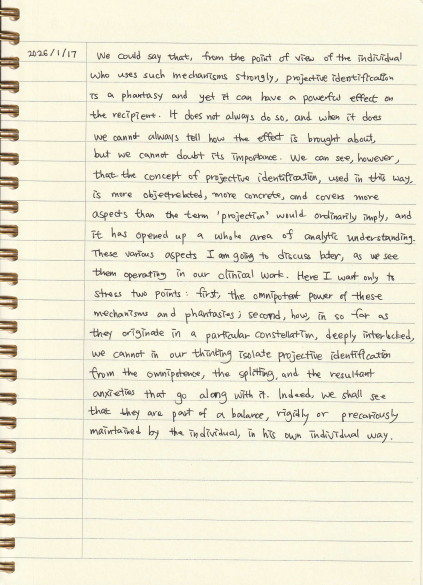 2026/1/17
We could say that, from the point of view of the individual
who uses such mechanisms strongly, projective identification
is a phantasy and yet it can have a powerful effect on
the recipient. It does not always do so, and when it does
we cannot always tell how the effect is brought about,
but we cannot doubt its importance. We can see, however,
that the concept of projective identification, used in this way,
is more objectrelated, more concrete, and covers more
aspects than the term 'projection' would ordinarily imply, and
it has opened up a whole area of analytic understanding.
These various aspects I am going to discuss later, as we see
them operating in our clinical work. Here I want only to
stress two points: first, the omnipotent power of these
mechanisms and phantasies; second, how, in so far as
they originate in a particular constellation, deeply interlocked,
we cannot in our thinking isolate projective identification
from the omnipotence, the splitting, and the resultant
anxieties that go along with it. Indeed, we shall see
that they are part of a balance, rigidly or precariously
maintained by the individual, in his own individual way.